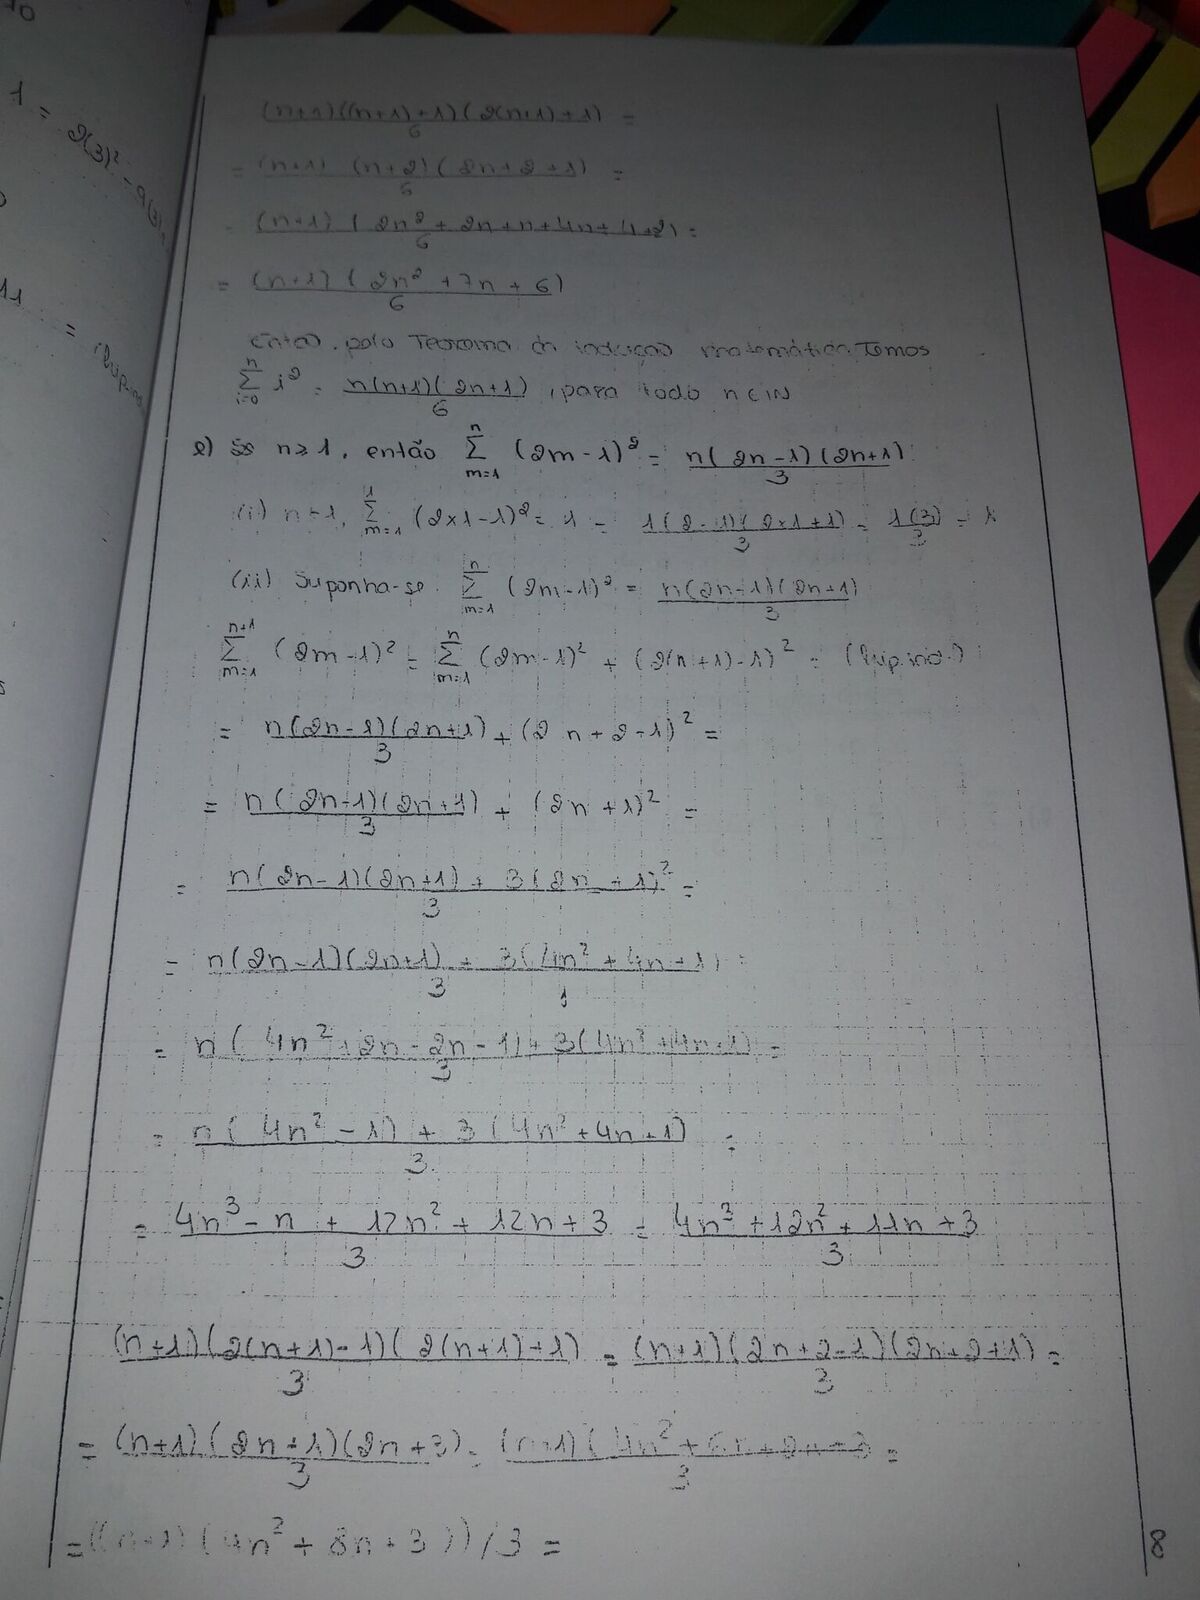 10
1 = 2(3)² - 9(3)
11 =
(n+1)((n+1)+1)(2(n+1)+1) =
6
= (n+1) (n+2)(2n+2+1) =
6
= (n+1) ( 2n² + 2n+n+4n+4+2) =
6
= (n+1) (2n² + 7n + 6)
6
Então, pelo Teorema da indução matemática Temos
n
∑ i² = n(n+1)(2n+1) , para todo n ∈ IN
i=0 6
e) Se n ≥ 1, então ∑ (2m-1)² = n(2n-1)(2n+1)
n
m=1 3
(i) n=1, ∑ (2×1-1)² = 1 = 1(2-1)(2×1+1) = 1(3) = 1
1
m=1 3 3
(ii) Suponha-se ∑ (2m-1)² = n(2n-1)(2n+1)
n
m=1 3
n+1 n
∑ (2m-1)² = ∑ (2m-1)² + (2(n+1)-1)² = (Sup.ind.)
m=1 m=1
= n(2n-1)(2n+1) + (2n+2-1)² =
3
= n(2n-1)(2n+1) + (2n+1)² =
3
= n(2n-1)(2n+1) + 3(2n+1)² =
3
= n(2n-1)(2n+1) + 3(4n²+4n+1) =
3
= n( 4n²+2n-2n-1)+3(4n²+4n+1) =
3
= n( 4n²-1) + 3(4n²+4n+1) =
3
= 4n³ - n + 12n² + 12n + 3 = 4n³ + 12n² + 11n + 3
3 3
(n+1)(2(n+1)-1)(2(n+1)+1) = (n+1)(2n+2-1)(2n+2+1) =
3 3
= (n+1)(2n+1)(2n+3) = (n+1)(4n²+6n+2n+3 =
3 3
= ((n+1)(4n²+8n+3))/3 =
8